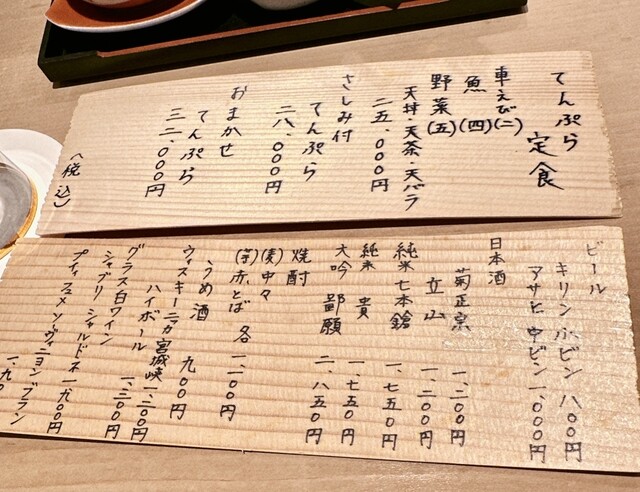 てんぷら定食
車えび(二)
魚(四)
野菜(五)
天丼・天茶・天バラ
二五、〇〇〇円
さしみ付
てんぷら
二八、〇〇〇円
おまかせ
てんぷら
三二、〇〇〇円
(税込)
ビール
キリン小ビン 八〇〇円
アサヒ中ビン 一、〇〇〇円
日本酒
菊正宗 一、二〇〇円
立山 一、二〇〇円
純米 七本鎗 一、七五〇円
純米 貴 一、七五〇円
大吟 鄙願 二、八五〇円
焼酎
(麦)中々
(芋)赤とば 各 一、一〇〇円
うめ酒 九〇〇円
ウィスキーニッカ宮城峡
ハイボール 一、二〇〇円
グラス白ワイン 一、三〇〇円
シャブリ シャルドネ 一、九〇〇円
プティフュメ ソーヴィニヨンブラン
一、九〇